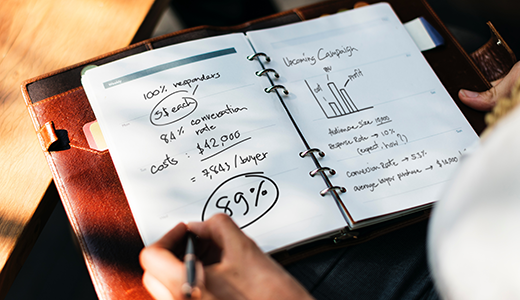 100% responders
5$ each
8.1% conversation
rate
costs = $42,000
= 784$ / buyer
89%
Upcoming Campaign
rev
profit
Audience size 10,000
Response Rate → 10%
(expect how?)
Conversion Rate → 53%
average buyer purchase →